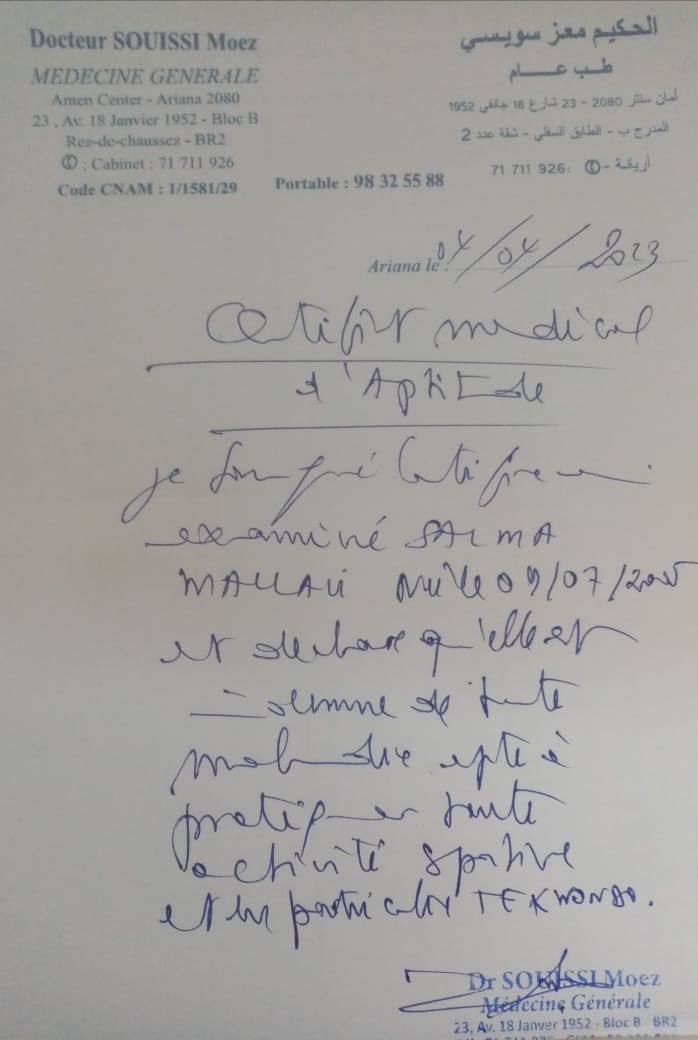 Docteur SOUISSI Moez
MEDECINE GENERALE
Amen Center - Ariana 2080
23 , Av. 18 Janvier 1952 - Bloc B
Rez-de-chaussez - BR2
✆ : Cabinet : 71 711 926
Code CNAM : 1/1581/29
Portable : 98 32 55 88
الحكيم معز سويسي
طب عام
أمان سنتر 2080 - 23 شارع 18 جانفي 1952
المدرج ب - الطابق السفلي - شقة عدد 2
أريانة - ✆ :71 711 926
Ariana le : 04/04/2023
Certificat medical
d'Aptitude
je soussigné Certifie avoir
examiné SALMA
née le 09/07/2005
et declare qu'elle est
indemne de toute
maladie apte à
pratiquer toute
activité sportive
et en particulier TEKWONDO.
Dr SOUISSI Moez
Médecine Générale
23, Av. 18 Janver 1952 - Bloc B BR2